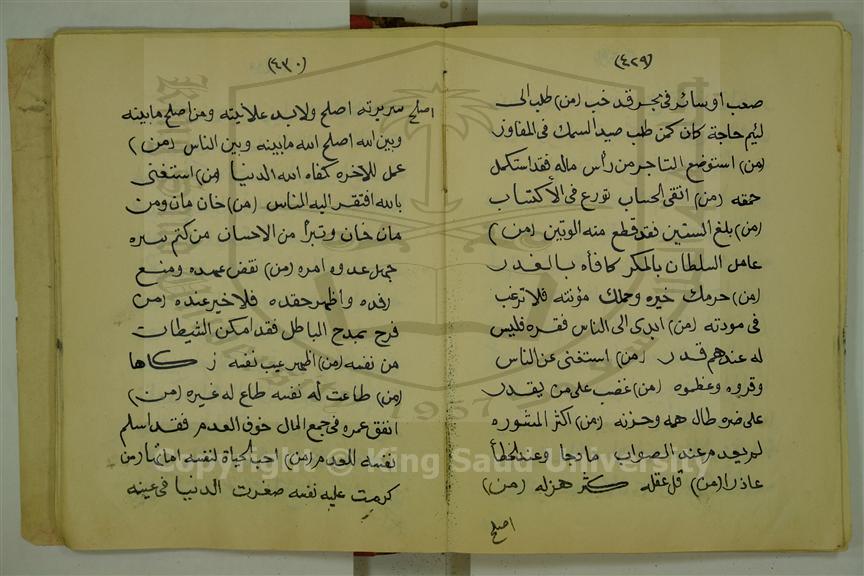 (٤٢٩)
صعب او سائر في بحر قد خب (من) طلب الى
لئيم حاجة كان كمن طلب صيد السمك في المفاوز
(من) استوضع التاجر من رأس ماله فقد استكمل
حمقه (من) اتقى الحساب تورع في الأكتساب
(من) بلغ الستين فقد قطع منه الوتين (من)
عامل السلطان بالمكر كافأه بالغدر
(من) حرمك خيره وحملك مؤنته فلا ترغب
في مودته (من) ابدى الى الناس فقره فليس
له عندهم قدر (من) استغنى عن الناس
وقروه وعظموه (من) غضب على من يقدر
على ضره طال همه وحزنه (من) اكثر المشوره
لم يعدم عند الصواب مادحا وعند الخطأ
عاذرا (من) قل عقله كثر هزله (من)
اصلح
(٤٣٠)
اصلح سريرته اصلح ولابد علانيته ومن اصلح مابينه
وبين الله اصلح الله مابينه وبين الناس (من)
عمل للاخره كفاه الله الدنيا (من) استغنى
بالله افتقر اليه الناس (من) خان مان ومن
مان خان وتبرأ من الاحسان من كتم سره
جهل عدوه امره (من) نقض عهده ومنع
رفده واظهر حقده فلا خير عنده (من)
فرح بمدح الباطل فقد امكن الشيطان
من نفسه (من) اظهر عيب نفسه زكاها
(من) طاعت له نفسه طاع له غيره (من)
انفق عمره في جمع المال خوف العدم فقد اسلم
نفسه للعدم (من) احب الحياة لنفسه اماتها (من
كرمت عليه نفسه صغرت الدنيا في عينه
Copyright © King Saud University
1957